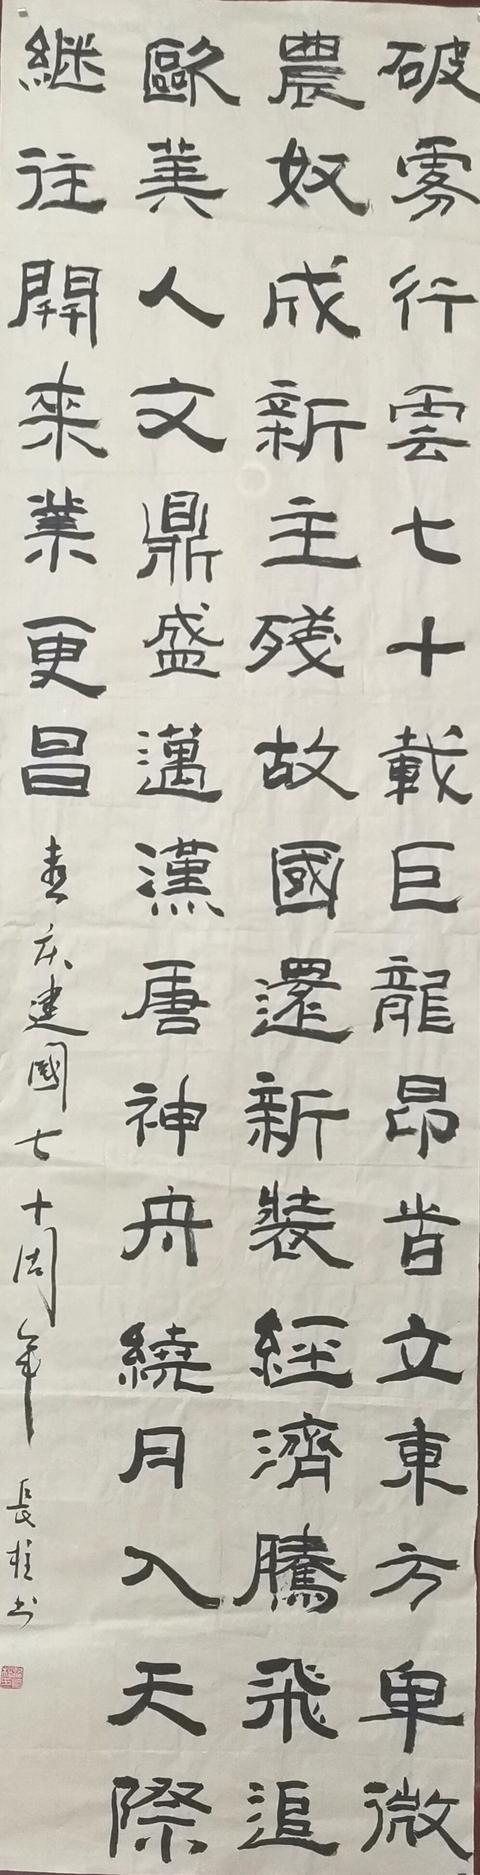 破雾行雲七十載巨龍昂首立東方卑微
農奴成新主残故國還新裝經濟騰飛追
歐美人文鼎盛邁漢唐神舟繞月入天際
継往開來業更昌
喜庆建國七十周年 長书